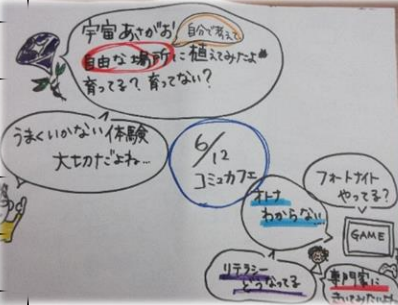 宇宙あさがお
自分で考えて
自由な場所に植えてみたよ
育ってる?育ってない?
うまくいかない体験
大切だよね…
6/12
コミュカフェ
フォートナイト
やってる?
オトナ
わからない…
GAME
リテラシー
どうなってる
専門家に
きいてみたいよね